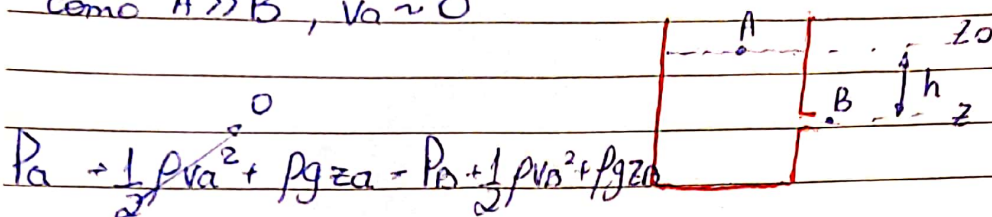 como A >> B, Va ~ 0
A
z0
h
B
z
0
Pa + 1/2 ρva² + ρgza = PB + 1/2 ρvB² + ρgzB